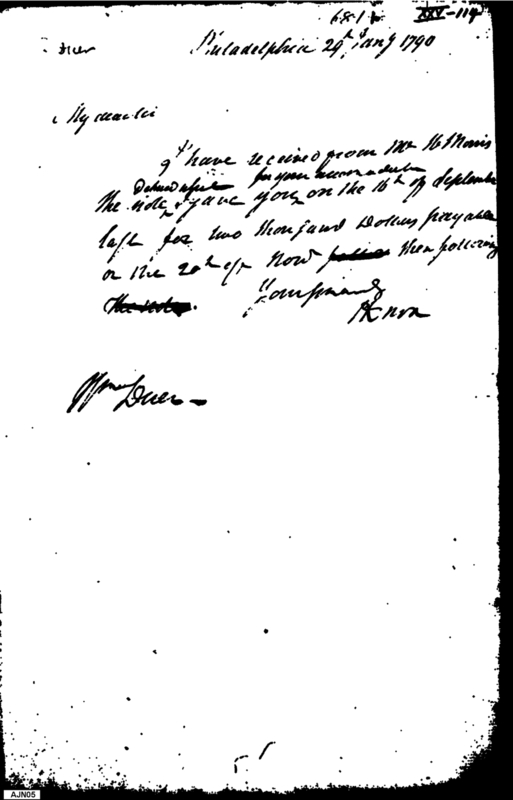 681
XXV-114
Duer
Philadelphia 29th Jany 1790
My dear sir
I have received from Mr. H Morris
for your accommodation
the note I gave you on the 16th of September
last for two thousand Dollars payable
on the 20th of Nov then following
Yours sincerely
HKnox
Wm Duer
AJN05